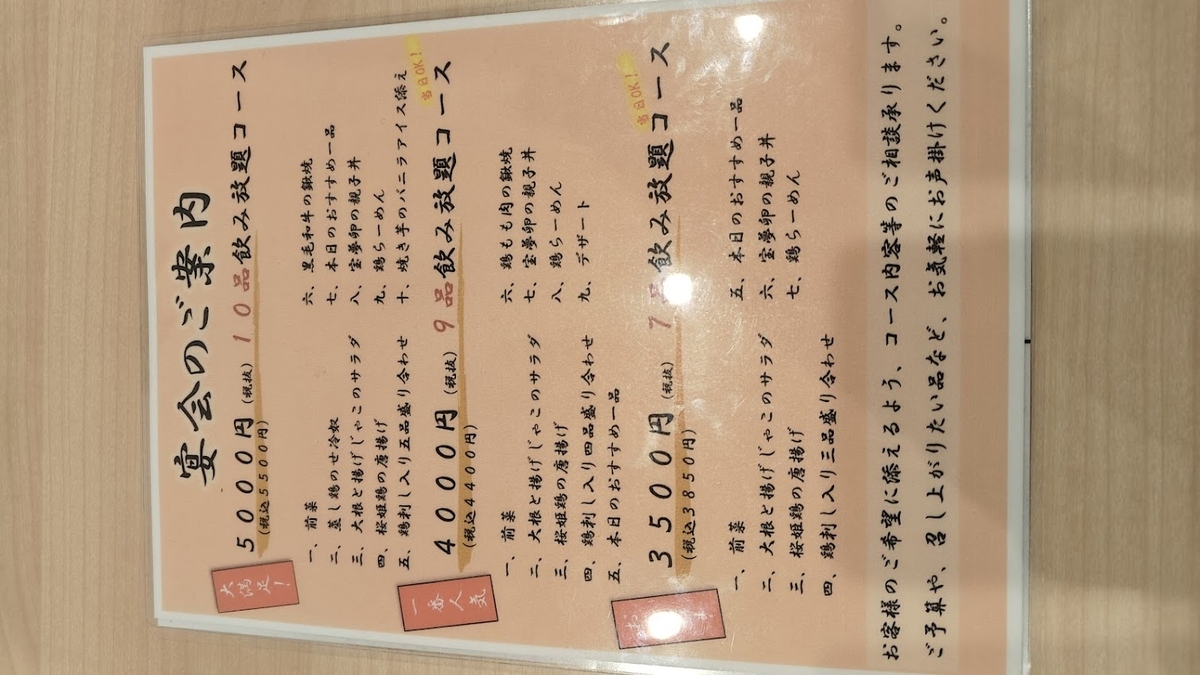 宴会のご案内
大満足！
5000円(税抜)10品飲み放題コース
(税込5500円)
一、前菜
二、蒸し鶏のせ冷奴
三、大根と揚げじゃこのサラダ
四、桜姫鶏の唐揚げ
五、鶏刺し入り五品盛り合わせ
六、黒毛和牛の鍬焼
七、本日のおすすめ一品
八、宝夢卵の親子丼
九、鶏らーめん
十、焼き芋のバニラアイス添え
一番人気
4000円(税抜)9品飲み放題コース
当日OK！
(税込4400円)
一、前菜
二、大根と揚げじゃこのサラダ
三、桜姫鶏の唐揚げ
四、鶏刺し入り四品盛り合わせ
五、本日のおすすめ一品
六、鶏もも肉の鍬焼
七、宝夢卵の親子丼
八、鶏らーめん
九、デザート
3500円(税抜)7品飲み放題コース
当日OK！
(税込3850円)
一、前菜
二、大根と揚げじゃこのサラダ
三、桜姫鶏の唐揚げ
四、鶏刺し入り三品盛り合わせ
五、本日のおすすめ一品
六、宝夢卵の親子丼
七、鶏らーめん
お客様のご希望に添えるよう、コース内容等のご相談承ります。
ご予算や、召し上がりたい品など、お気軽にお声掛けください。